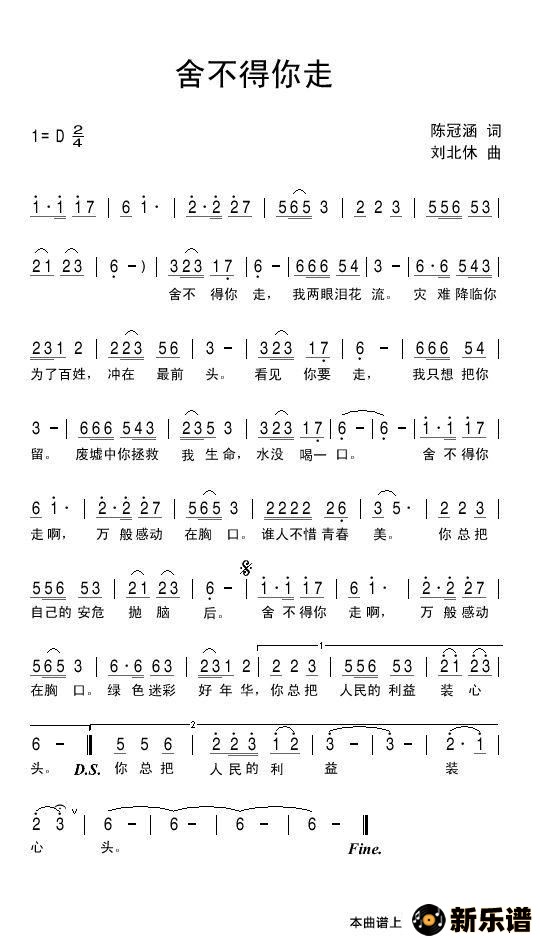 舍不得你走
1=D 2/4
陈冠涵 词
刘北休 曲
1·1 17 | 6 1· | 2·2 27 | 565 3 | 2 2 3 | 556 53 |
21 23 | 6 -) | 323 17 | 6 - | 666 54 | 3 - | 6·6 543 |
舍不 得你 走， 我两眼泪花 流。 灾 难降临你
2312 | 223 56 | 3 - | 323 17 | 6 - | 666 54 |
为了百姓， 冲在 最前 头。 看见 你要 走， 我只想把你
3 - | 666 543 | 235 3 | 323 17 | 6 - | 6 - | 1·1 17 |
留。 废墟中你拯救 我 生命， 水没 喝一 口。 舍 不得你
6 1· | 2·2 27 | 565 3 | 2222 26 | 3 5· | 2 2 3 |
走啊， 万 般感动 在胸 口。 谁人不惜青春 美。 你总把
556 53 | 21 23 | 6 - | 1·1 17 | 6 1· | 2·2 27 |
自己的 安危 抛 脑 后。 舍 不得你 走啊， 万 般感动
1
565 3 | 6·6 63 | 231 2 | 2 2 3 | 556 53 | 21 23 |
在胸 口。 绿 色迷彩 好年华， 你总把 人民的 利益 装 心
2
6 - 5 5 6 | 2·23 12 | 3 - | 3 - | 2·1 |
头。 D.S. 你 总 把 人民的 利 益 装
2 3 ∨ | 6 - | 6 - | 6 - | 6 -
心 头。 Fine.
本曲谱上 新乐谱